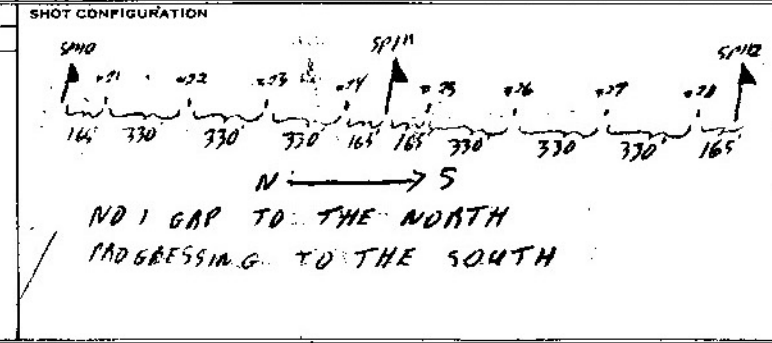 SHOT CONFIGURATION
SP110 SP111 SP112
#21 #22 #23 #24 #25 #26 #27 #28
165' 330' 330' 330' 165' 165' 330' 330' 330' 165'
N S
NO 1 GAP TO THE NORTH
PROGRESSING TO THE SOUTH